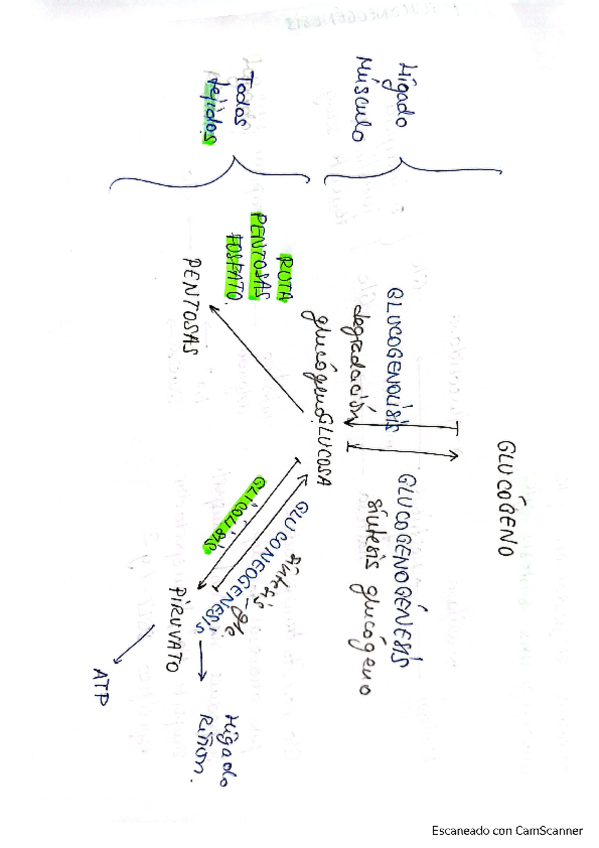 GLUCÓGENO
Hígado
Músculo
GLUCOGENOLISIS
degradación
glucógeno
GLUCOGENOGÉNESIS
síntesis glucógeno
GLUCOSA
Todos
tejidos
RUTA
PENTOSAS
FOSFATO.
PENTOSAS
GLICÓLISIS
GLUCONEOGENESIS
síntesis glc.
PIRUVATO
Hígado
Riñon.
ATP
Escaneado con CamScanner